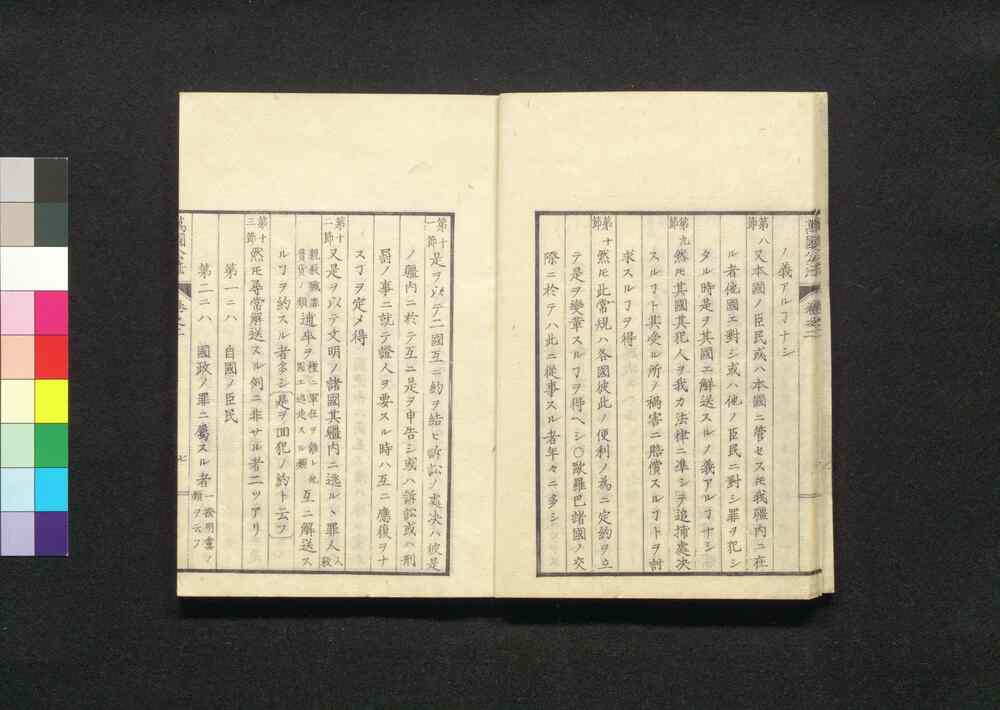 ノ義アルヿナシ
第八節 又本國ノ臣民或ハ本國ニ管セスㇳモ我疆内ニ在
ル者他國ニ對シ或ハ他ノ臣民ニ對シ罪ヲ犯シ
タル時是ヲ其國エ解送スルノ義アルヿナシ
第九節 然𪜈其國其犯人ヲ我カ法律ニ準シテ追捕處决
スルヿト其受ル所ノ禍害ニ賠償スルヿトヲ討
求スルヿヲ得
第十節 然𪜈此常規ハ各國彼此ノ便利ノ為ニ定約ヲ立
テ是ヲ變革スルヿヲ得ヘシ〇歐羅巴諸國ノ交
際ニ於テハ此ニ從事スル者年々ニ多シ
第十一節 是ヲ以テ二國互ニ約ヲ結ヒ訴訟ノ處决ハ彼是
ノ疆内ニ於テ互ニ是ヲ申告シ或ハ訴訟或ハ刑
罰ノ事ニ就テ證人ヲ要スル時ハ互ニ應復ヲナ
スヿヲ定メ得
第十二節 又是ヲ以テ文明ノ諸國其疆内ニ逃ルヽ罪人
逋率ヲ
互ニ解送ス
ルヿヲ約スル者多シ是ヲ囬犯ノ約ト云フ
第十三節 然𪜈尋常解送スル例ニ非サル者二ツアリ
第一ニハ 自國ノ臣民
第二ニハ 國政ノ罪ニ屬スル者
類ヲ云フ
萬國公法 卷之二
七